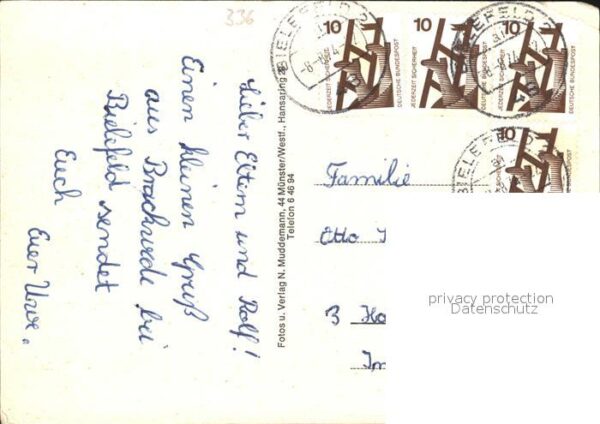 336
Lieber Eltern und Rolf!
Einen kleinen Gruß
aus Brackwede bei
Bielefeld sendet
Euch
Euer Uwe.
Fotos u. Verlag N. Muddemann, 44 Münster/Westf., Hansaring 28
Telefon 6 46 94
Familie
Otto
3 Ha
Im
10
JEDERZEIT SICHERHEIT
DEUTSCHE BUNDESPOST
10
JEDERZEIT SICHERHEIT
DEUTSCHE BUNDESPOST
10
JEDERZEIT SICHERHEIT
DEUTSCHE BUNDESPOST
10
BIELEFELD
BIELEFELD
BIELEFELD
privacy protection
Datenschutz